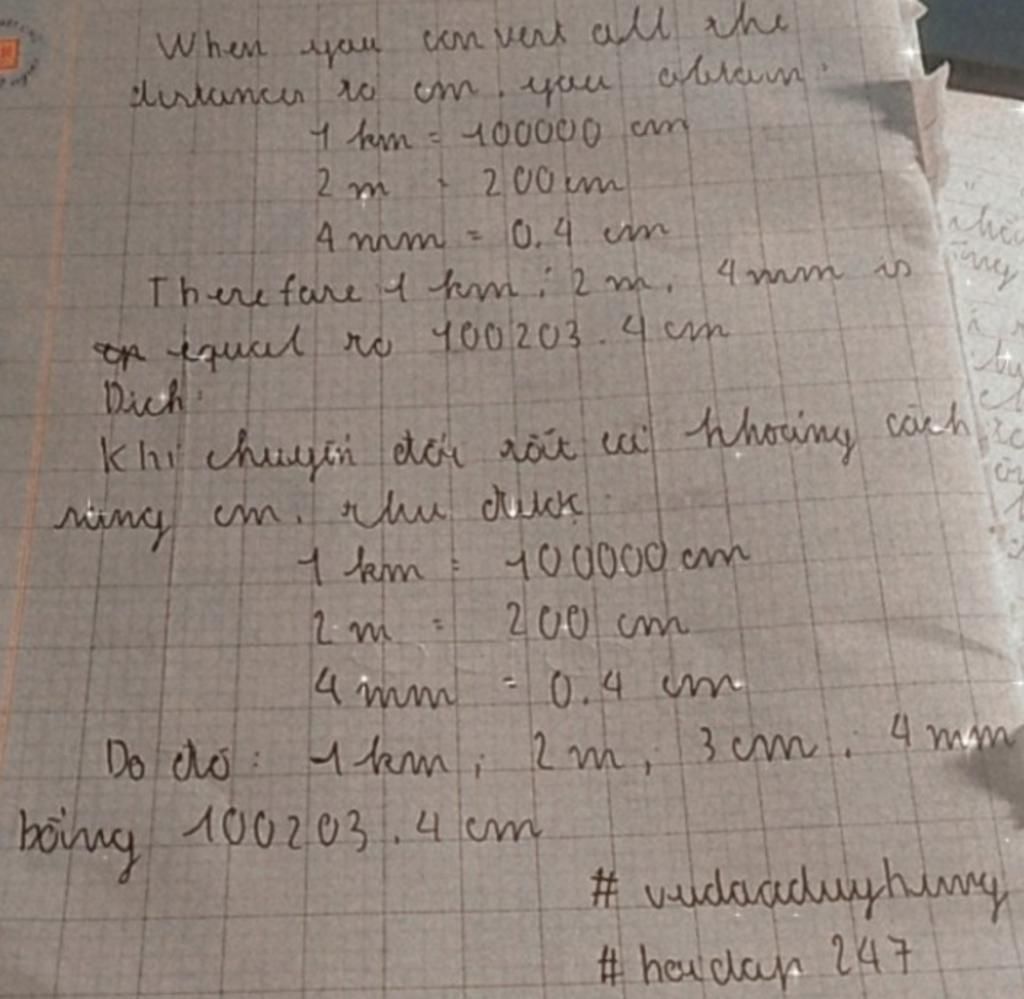 When you convert all the
distances to cm. you obtain:
1 km = 100000 cm
2 m = 200 cm
4 mm = 0.4 cm
Therefore 1 km; 2 m, 4 mm is
equal to 100203.4 cm
Dich:
Khi chuyển đổi tất cả khoảng cách
sang cm. thu được:
1 km = 100000 cm
2 m = 200 cm
4 mm = 0.4 cm
Do đó: 1 km; 2 m; 3 cm. 4 mm
bằng 100203.4 cm
# vudaaduyhung
# hoidap 247